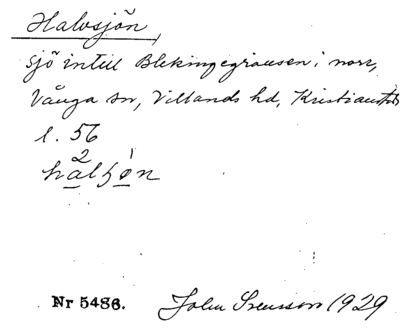 Halvsjön
sjö intill Blekingegränsen i norr,
Vånga sn, Villands hd, Kristianst.
l. 56
2 1
halʃøn
Nr 5486. John Svensson 1929